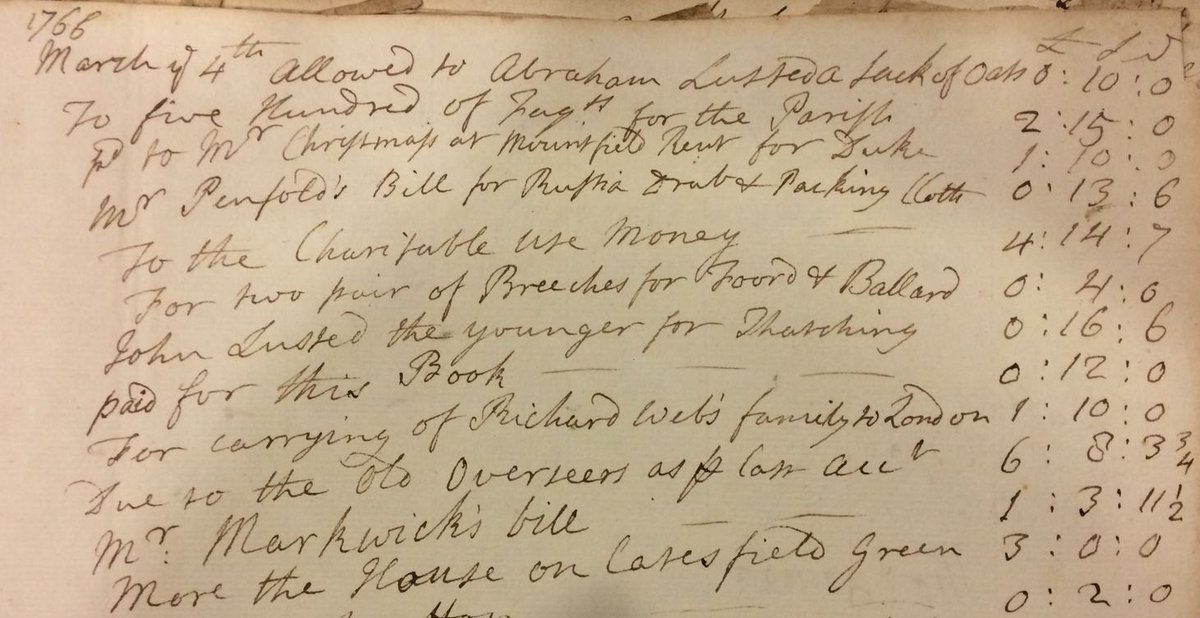 1766
£ S D
March ye 4th allowed to Abraham Lusted a Sack of Oats 0 : 10 : 0
To five Hundred of Fagts for the Parish 2 : 15 : 0
pd to Mr Christmass at Mountfield Rent for Duke 1 : 10 : 0
Mr Penfold's Bill for Russia Drab & Packing Cloth 0 : 13 : 6
To the Charitable use Money 4 : 14 : 7
For two pair of Breeches for Foord & Ballard 0 : 4 : 0
John Lusted the younger for Thatching 0 : 16 : 6
paid for this Book 0 : 12 : 0
For carrying of Richard Web's family to London 1 : 10 : 0
Due to the Old Overseers as p last Acct 6 : 8 : 3 3/4
Mr. Markwick's bill 1 : 3 : 11 1/2
More the House on Catesfield Green 3 : 0 : 0
0 : 2 : 0